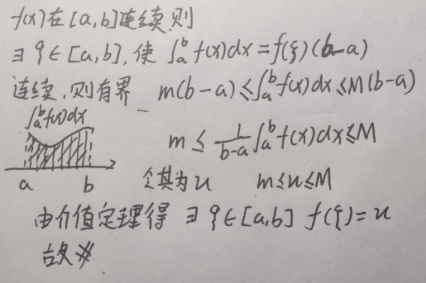 f(x)在[a,b]连续则
∃ξ∈[a,b],使 ∫ₐᵇ f(x)dx=f(ξ)(b-a)
连续,则有界 m(b-a)≤∫ₐᵇ f(x)dx≤M(b-a)
∫ₐᵇ f(x)dx
m≤ 1/(b-a) ∫ₐᵇ f(x)dx≤M
a b 令其为u m≤u≤M
由介值定理得 ∃ξ∈[a,b] f(ξ)=u
故